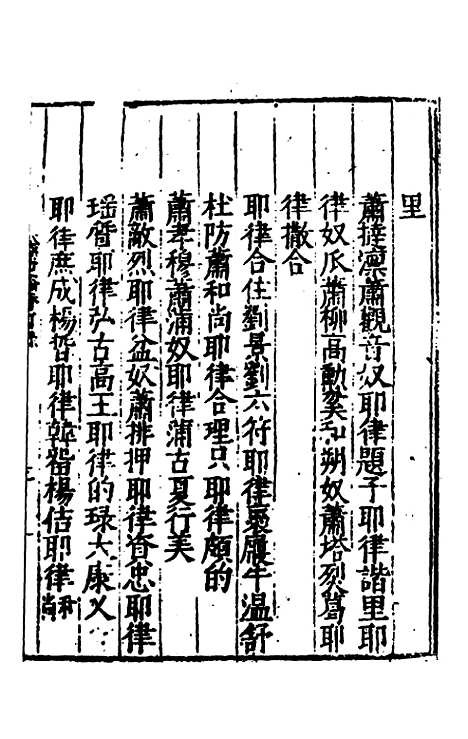 里
蕭撻凜蕭觀音奴耶律題子耶律諧里耶
律奴瓜蕭柳高勳奚和朔奴蕭塔烈葛耶
律撒合
耶律合住劉景劉六符耶律褭履牛温舒
杜防蕭和尚耶律合理只耶律頗的
蕭孝穆蕭蒲奴耶律蒲古夏行美
蕭敵烈耶律盆奴蕭排押耶律資忠耶律
瑶質耶律弘古高王耶律的琭大康乂
耶律庶成楊晢耶律韓留楊佶耶律和尚